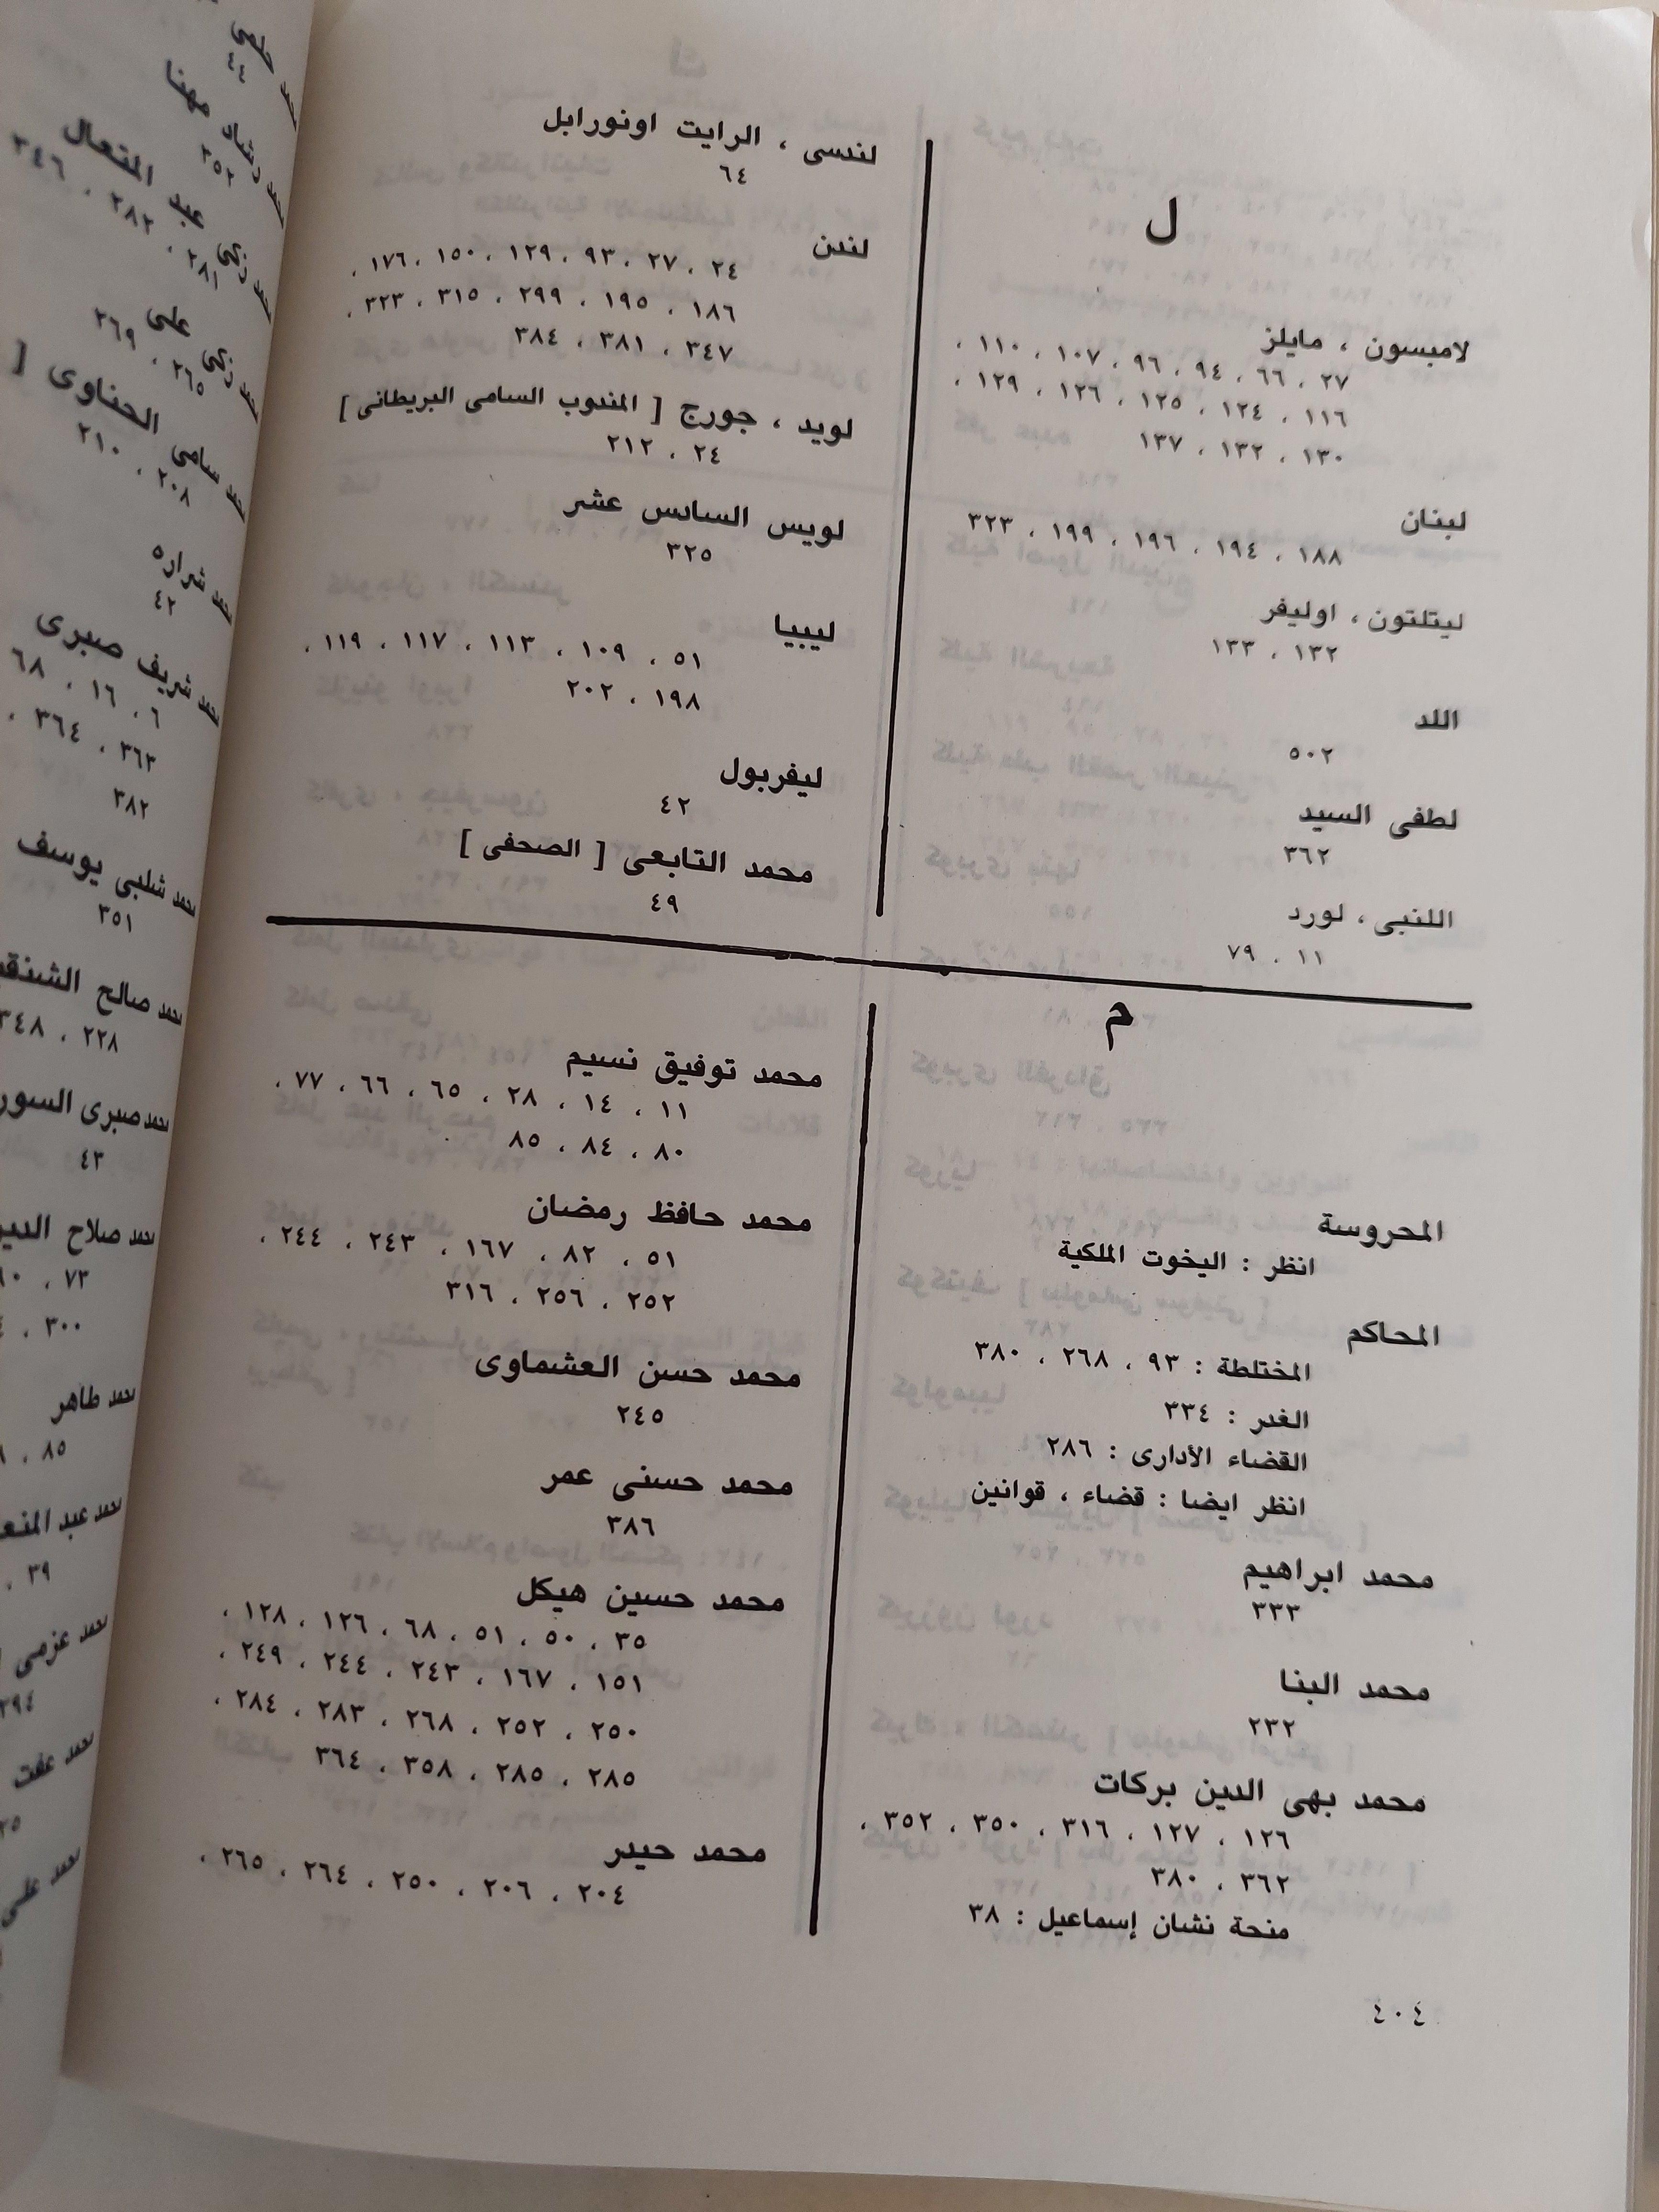 ل
لامبسون ، مايلز
٢٧ ، ٦٦ ، ٩٤ ، ٩٦ ، ١٠٧ ، ١١٠ ،
١١٦ ، ١٢٤ ، ١٢٥ ، ١٢٦ ، ١٢٩ ،
١٣٠ ، ١٣٢ ، ١٣٧
لبنان
١٨٨ ، ١٩٤ ، ١٩٦ ، ١٩٩ ، ٣٢٣
ليتلتون ، اوليفر
١٣٢ ، ١٣٣
اللد
٥٠٢
لطفى السيد
٣٦٢
اللنبى ، لورد
١١ ، ٧٩
لندسى ، الرايت اونورابل
٦٤
لندن
٢٤ ، ٢٧ ، ٩٣ ، ١٢٩ ، ١٥٠ ، ١٧٦ ،
١٨٦ ، ١٩٥ ، ٢٩٩ ، ٣١٥ ، ٣٢٣ ،
٣٤٧ ، ٣٨١ ، ٣٨٤
لويد ، جورج [ المندوب السامى البريطانى ]
٢٤ ، ٢١٢
لويس السادس عشر
٣٢٥
ليبيا
٥١ ، ١٠٩ ، ١١٣ ، ١١٧ ، ١١٩ ،
١٩٨ ، ٢٠٢
ليفربول
٤٢
محمد التابعى [ الصحفى ]
٤٩
م
المحروسة
انظر : اليخوت الملكية
المحاكم
المختلطة : ٩٣ ، ٢٦٨ ، ٣٨٠
الغدر : ٣٣٤
القضاء الأدارى : ٢٨٦
انظر ايضا : قضاء ، قوانين
محمد ابراهيم
٣٣٣
محمد البنا
٢٣٢
محمد بهى الدين بركات
١٢٦ ، ١٢٧ ، ٣١٦ ، ٣٥٠ ، ٣٥٢ ،
٣٦٢ ، ٣٨٠
منحة نشان إسماعيل : ٣٨
محمد توفيق نسيم
١١ ، ١٤ ، ٢٨ ، ٦٥ ، ٦٦ ، ٧٧ ،
٨٠ ، ٨٤ ، ٨٥
محمد حافظ رمضان
٥١ ، ٨٢ ، ١٦٧ ، ٢٤٣ ، ٢٤٤ ،
٢٥٢ ، ٢٥٦ ، ٣١٦
محمد حسن العشماوى
٢٤٥
محمد حسنى عمر
٣٨٦
محمد حسين هيكل
٣٥ ، ٥٠ ، ٥١ ، ٦٨ ، ١٢٦ ، ١٢٨ ،
١٥١ ، ١٦٧ ، ٢٤٣ ، ٢٤٤ ، ٢٤٩ ،
٢٥٠ ، ٢٥٢ ، ٢٦٨ ، ٢٨٣ ، ٢٨٤ ،
٢٨٥ ، ٢٨٥ ، ٣٥٨ ، ٣٦٤
محمد حيدر
٢٠٤ ، ٢٠٦ ، ٢٥٠ ، ٢٦٤ ، ٢٦٥ ،
٤٠٤
محمد حلمى
٤٤
محمد رشاد مهنا
٢٥٢
محمد زكى عبد المتعال
٢٨١ ، ٢٨٢ ، ٢٤٦
محمد زكى على
٢٦٥ ، ٢٦٩
محمد سامى الحناوى [
٢٠٨ ، ٢١٠
محمد شراره
٤٢
محمد شريف صبرى
٦ ، ١٦ ، ٦٨
٣٦٣ ، ٣٦٤ ،
٣٨٢
محمد شلبى يوسف
٣٥١
محمد صالح
٢٢٨ ، ٣٤٨
محمد صبرى
٤٣
محمد صلاح
٧٣ ،
٣٠٠ ،
محمد طاهر
٨٥ ،
محمد عبد
٣٩ ،
محمد عزمى
محمد عفت
محمد على